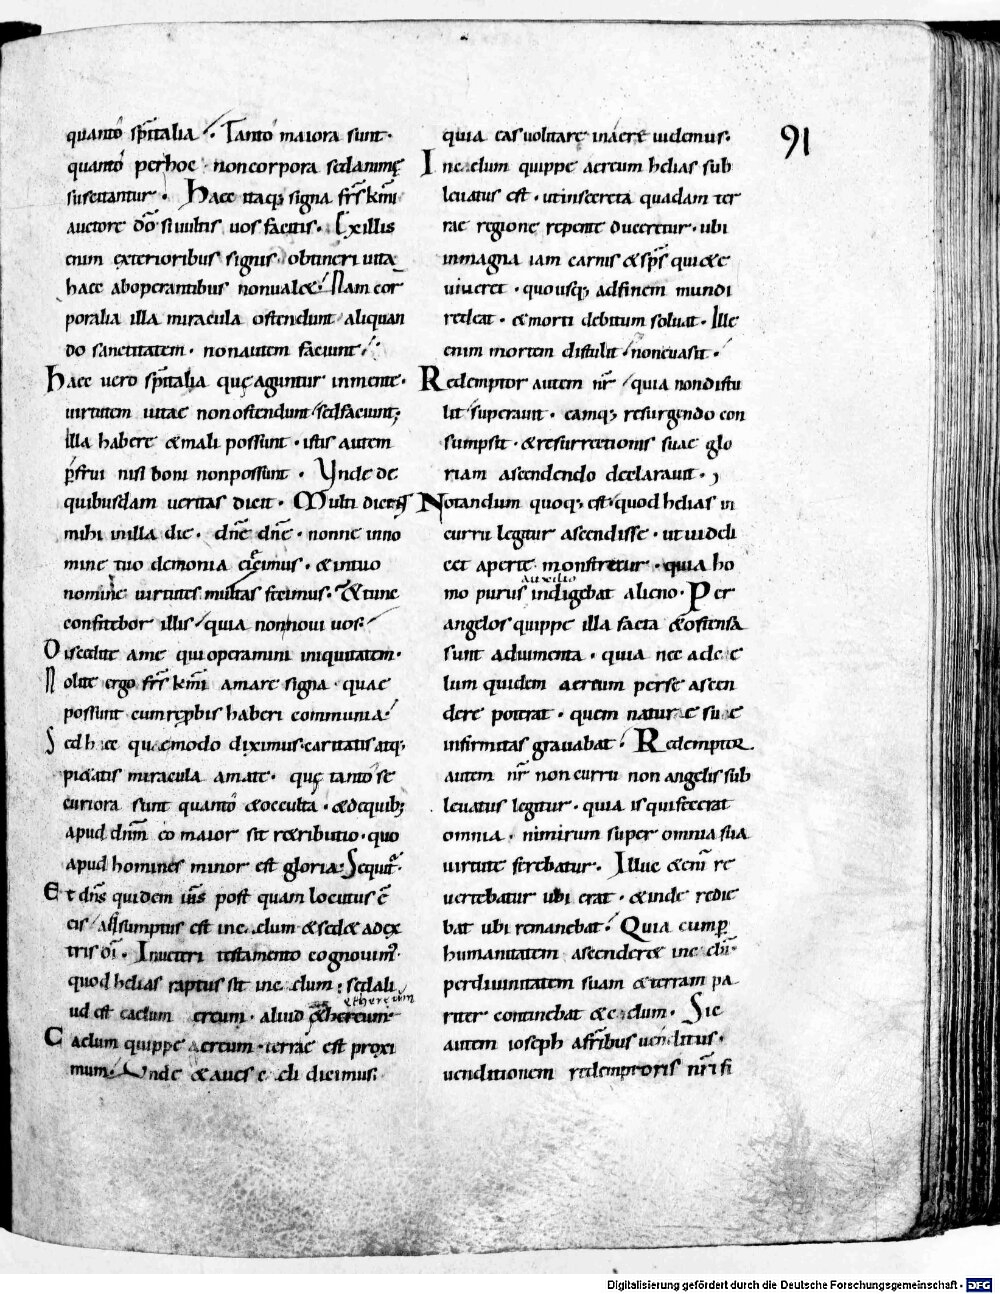 quanto sp̄italia. Tanto maiora sunt.
quanto perhoc. noncorpora sedanimę
suscitantur. Haec itaq; signa frs̄ km̄i
auctore dō sivultis vos facitis. Ex illis
enim exterioribus signis. obtineri uita
haec aboperantibus nonval&. Nam cor
poralia illa miracula ostendunt aliquan
do sanctitatem. nonautem faciunt.
Haec vero sp̄italia quę aguntur inmente.
virtutem vitae nonostendunt sedfaciunt;
illa habere &mali possunt. istis autem
p̄frui nisi boni nonpossunt. Unde de
quibusdam veritas dicit. Multi dicent
mihi inilla die. dn̄e dn̄e. nonne inno
mine tuo demonia eiecimus. &intuo
nomine virtutes multas fecimus. &tunc
confitebor illis quia nonnovi vos.
Discedite ame qui operamini iniquitatem.
Nolite ergo frs̄ km̄i amare signa. quae
possunt cum rep̄bis haberi communia.
Sed haec quaemodo diximus caritatis atq;
pi&atis miracula amate. quę tanto se
curiora sunt quanto &occulta. &dequib;
apud dnm̄ eo maior sit r&ributio. quo
apud homines minor est gloria. Sequit᷑.
Et dn̄s quidem ih̄s post quam locutus ē
eis assumptus est incaelum &sed& adex
tris dī. Inveteri testamento cognovim᷑.
quod helias raptus sit incaelum. sedali
etthereum
ud est caelum aereum. aliud &hereum
Caelum quippe aereum. terrae est proxi
mum. Unde &aves caeli dicimus.
quia eas volitare inaere videmus.
91
Incaelum quippe aereum helias sub
levatus est. utinsecreta quadam ter
rae regione repente duceretur. ubi
inmagna iam carnis &sp̄s qui&e
viveret. quousq; adfinem mundi
redeat. &morti debitum solvat. Ille
enim mortem distulit nonevasit.
Redemptor autem nr̄ quia nondistu
lit superavit. eamq; resurgendo con
sumpsit. &resurrectionis suae glo
riam ascendendo declaravit.
Notandum quoq; est quod helias in
curru legitur ascendisse. ut videli
cet aperte monstretur. quia ho
auxilio
mo purus indigebat alieno. Per
angelos quippe illa facta &ostensa
sunt adiumenta. quia nec adcae
lum quidem aereum perse ascen
dere poterat. quem naturae suae
infirmitas gravabat. Redemptor
autem nr̄ non curru non angelis sub
levatus legitur. quia is qui fecerat
omnia. nimirum super omnia sua
virtute ferebatur. Illuc &eni᷑ re
vertebatur ubi erat. &inde redie
bat ubi remanebat. Quia cum p̱
humanitatem ascender& incaelū.
perdivinitatem suam &terram pa
riter continebat &caelum. Sic
autem ioseph afr̄ibus venditus.
venditionem redemptoris nr̄i fi